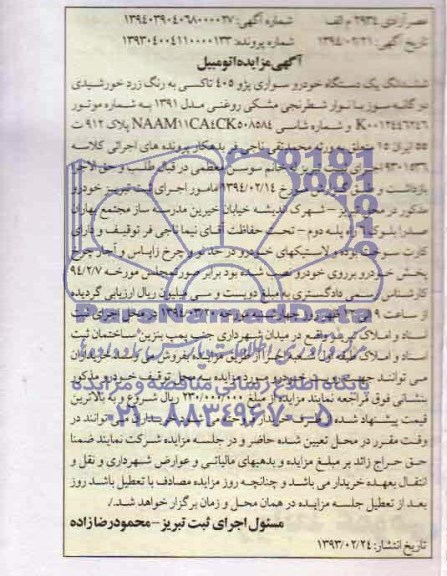 عصرآزادی ۲۹۳٤ م الف شماره آگهی: ۱۳۹٤۰۳۹۰٤۰٦۸۰۰۰۰۲۷
تاریخ آگهی: ۱۳۹٤/۰۲/۲۱ شماره پرونده: ۱۳۹۳۰٤۰۰٤۱۱۰۰۰۰۱۳۳
آگهی مزایده اتومبیل
ششدانگ یک دستگاه خودرو سواری پژو ٤۰٥ تاکسی به رنگ زرد خورشیدی
دوگانه سوز با نوار شطرنجی مشکی روغنی مدل ۱۳۹۱ به شماره موتور
و شماره شاسی NAAM۱۱CA٤CK٥۰۸٥۸٤ پلاک ۹۱۲ ت
٥٥ ایران ۱٥ متعلق به ورثه محمدتقی ناجی فر بدهکار پرونده های اجرائی کلاسه
اجرای ثبت تبریز که خانم سوسن معظمی در قبال طلب و حق الاجرا
بازداشت و طبق گزارش مورخ ۱۳۹٤/۰۲/۱٤ مامور اجرای ثبت تبریز خودرو
مذکور در محل تبریز - شهرک اندیشه خیابان خیرین مدرسه ساز مجتمع بهاران
صدرا بلوک پله دوم - تحت حفاظت آقای نیما ناجی فر توقیف و دارای
کارت سوخت بوده و لاستیکهای خودرو در حد نو و چرخ زاپاس و آچار چرخ
پخش خودرو برروی خودرو نصب شده بود برابر صورتمجلس مورخه ۹٤/۲/۷
کارشناس رسمی دادگستری به مبلغ دویست و سی میلیون ریال ارزیابی گردیده
از ساعت ۹ ظهر روز مورخه در محل اجرای ثبت
اسناد و املاک تبریز واقع در میدان شهرداری جنب پمپ بنزین ساختمان ثبت
اسناد و املاک طبقه اول از طریق مزایده بفروش می خریداران
می توانند جهت از خودرو مورد مزایده به محل توقیف خودرو مذکور
بنشانی فوق مراجعه نمایند مزایده از مبلغ ۲۳۰/۰۰۰/۰۰۰ ریال شروع و به بالاترین
قیمت پیشنهاد شده خریداران می توانند در
وقت مقرر در محل تعیین شده حاضر و در جلسه مزایده شرکت نمایند ضمنا
حق حراج زائد بر مبلغ مزایده و بدهیهای مالیاتی و عوارض شهرداری و نقل و
انتقال بعهده خریدار می باشد و چنانچه روز مزایده مصادف با تعطیل باشد روز
بعد از تعطیل جلسه مزایده در همان محل و زمان برگزار خواهد شد./
مسئول اجرای ثبت تبریز - محمودرضازاده
تاریخ انتشار: ۱۳۹۳/۰۲/۲٤
ParsNamadData
پایگاه اطلاع رسانی مناقصه و مزایده
۰۲۱-۸۸۳٤۹٦۷۰-٥